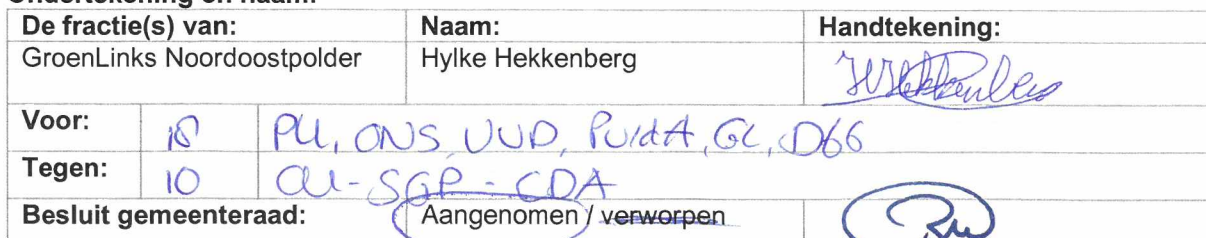 De fractie(s) van: Naam: Handtekening:
GroenLinks Noordoostpolder Hylke Hekkenberg
Voor: 18 PU, ONS, VVD, PvdA, GL, D66
Tegen: 10 CU-SGP-CDA
Besluit gemeenteraad: Aangenomen / verworpen